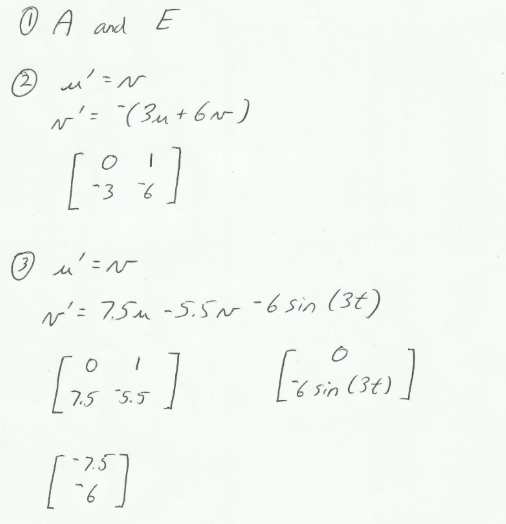 ① A and E
② u' = v
v' = -(3u + 6v)
[ 0 1
-3 -6 ]
③ u' = v
v' = 7.5u - 5.5v - 6 sin (3t)
[ 0 1
7.5 -5.5 ]
[ 0
-6 sin (3t) ]
[ -7.5
-6 ]